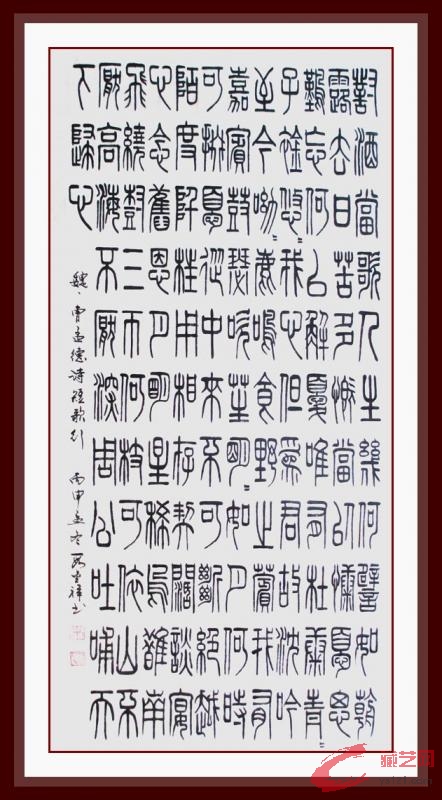 對酒當歌人生幾何譬如朝
露去日苦多慨當以慷憂思
難忘何以解憂唯有杜康青〻
子衿悠〻我心但為君故沈吟
至今呦〻鹿鳴食野之蘋我有
嘉賓鼓瑟吹笙明〻如月何時
可掇憂從中來不可斷絕越
陌度阡枉用相存契闊談宴
心念舊恩月明星稀烏鵲南
飛繞樹三匝何枝可依山不
厭高海不厭深周公吐哺天
下歸心
魏、曹孟德詩短歌行 丙申孟冬 書
藏艺网